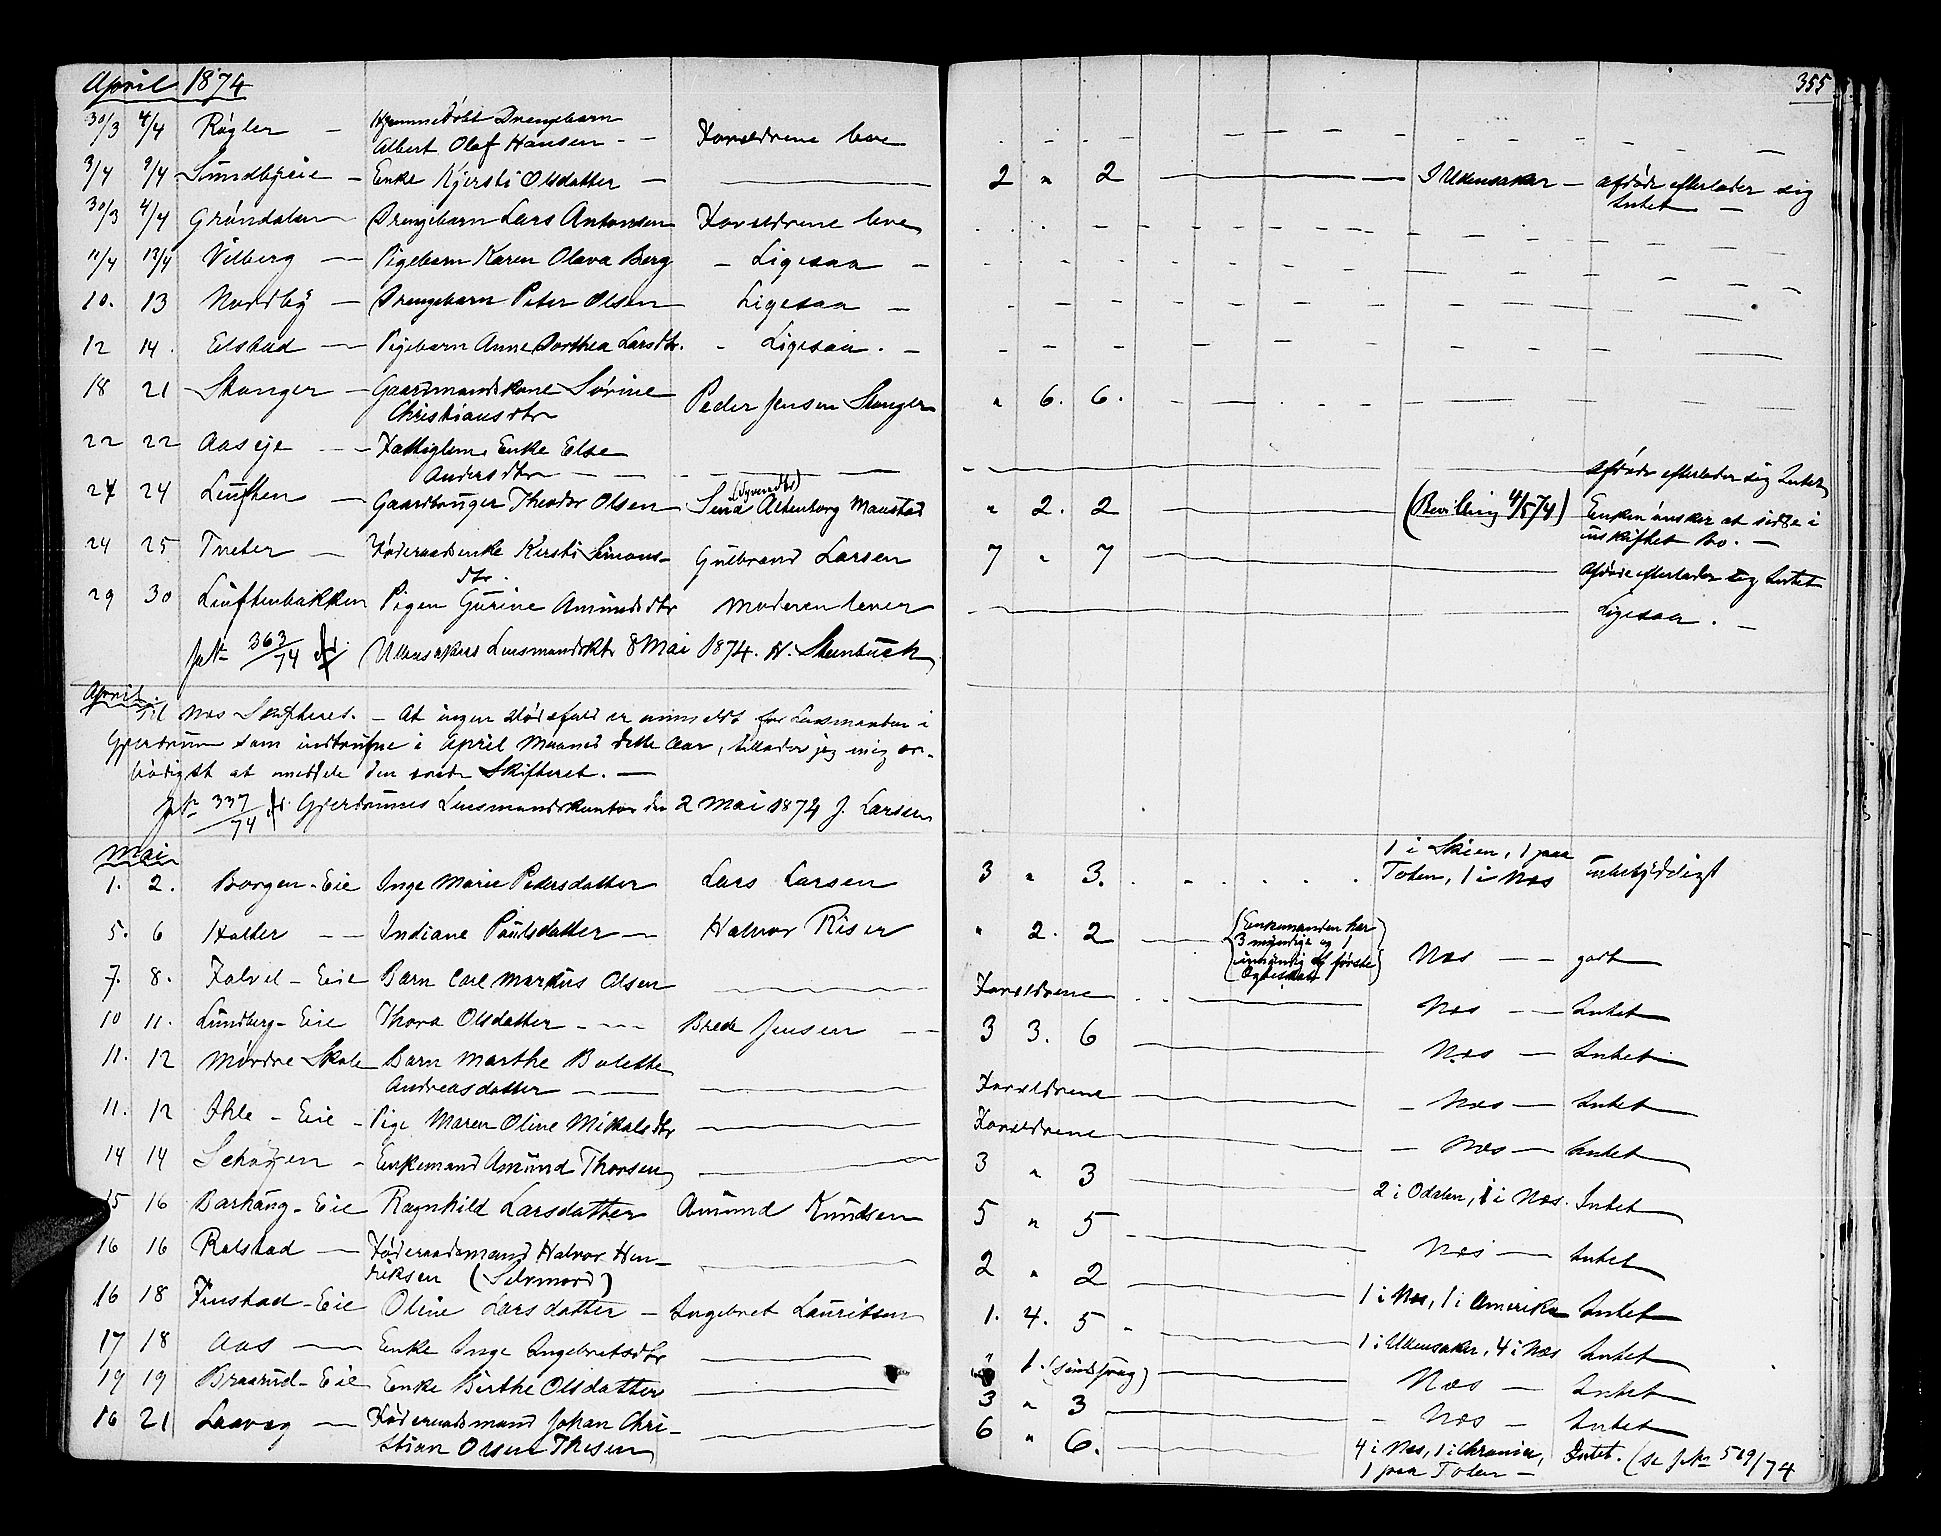 April 1874
355
30/3 4/4 Røgler — Hjemmedøbt Drengebarn
Albert Olaf Hansen - — Forældrene leve
3/4 9/4 Sundbyeie — Enke Kjersti Olsdatter — — 2 " 2 — I Ullensaker — afdøde efterlader sig
Intet —
30/3 4/4 Grøndalen — Drengebarn Lars Antonsen Forældrene leve
11/4 13/4 Vilberg — Pigebarn Karen Olava Berg - Ligesaa -
10. 13 Nordby — Drengebarn Peter Olsen — Ligesaa -
12 14. Elstad — Pigebarn Anne Dorthea Larsdtr. - Ligesaa. -
18 21 Slanger — Gaardmandskone Sørine
Christiansdtr Peder Jensen Slanger " 6. 6.
22 22 Aaseje — Fattiglem Enke Else
Andersdtr — — afdøde efterlader sig Intet
24 24 Luften — Gaardbruger Theodor Olsen — Sina Altenborg Maustad " 2. 2 (Bevilling 4/5 74) Enken ønsker at sidde i
uskiftet Bo. —
24 25 Tveter — Føderaadsenke Kirsti Simons-
dtr. Gulbrand Larsen 7 " 7 — afdøde efterlader sig Intet
29 30 Luftenbakken Pigen Gurine Amundsdtr Moderen lever — Ligesaa. —
JNr 363/74 Ullensakers Lensmandsktr 8 Mai 1874. N. Steenbuch
April
Til Nes Skifteret. — At ingen Dødsfald er anmeldt for Lensmanden i
Gjerdrum som indtrufne i April Maaned dette Aar, tillader jeg mig ær-
bødigst at meddele den ærede Skifteret. —
JNr 337/74 Gjerdrums Lensmandskontor den 2 Mai 1874 J. Larsen
Mai
1. 2. Borgen-Eie Inge Marie Pedersdatter Lars Larsen 3 " 3. 1 i Skien, 1 paa
Toten, 1 i Næs ubetydeligt
5. 6 Holter — Indiane Paulsdatter — Halvor Riser " 2. 2 — {Enkemanden har
3 myndige og 1
umyndig af første
Ægteskab} Næs — godt
7. 8. Falvel-Eie Barn Carl Markus Olsen — Forældrene — Næs — Intet
10 11. Lundberg-Eie Thora Olsdatter — Brede Jensen — 3 3. 6 — Næs — Intet
11. 12 Mørdre Skole Barn Marthe Bolette
Andreasdatter — — Forældrene — Næs — Intet
11. 12 Ihle - Eie - Pige Maren Oline Mikalsdtr — Forældrene — Næs — Intet
14 14 Schøyen - Enkemand Amund Thorsen — 3 " 3 — 2 i Odalen, 1 i Næs. Intet
15 16 Barhaug-Eie Ragnhild Larsdatter Amund Knudsen 5 " 5 — Næs — Intet
16 16 Rolstad — Føderaadsmand Halvor Hen-
riksen (Selvmord) — 2 " 2 — 1 i Næs, 1 i Amerika Intet
16 18 Finstad-Eie Oline Larsdatter — Ingebret Lauritsen 1. 4. 5 — 1 i Ullensaker, 4 i Næs Intet
17 18 Aas — Enke Inge Ingebretsdtr — " 1. (sindssvag) — Næs — Intet
19 19 Braarud-Eie Enke Birthe Olsdatter — 3 " 3 — Næs — Intet
16 21 Laaveg — Føderaadsmand Johan Chri-
stian Olsen Thesen — 6 " 6. — 4 i Næs, 1 i Chrania,
1 paa Toten — Intet. (se JNr 519/74